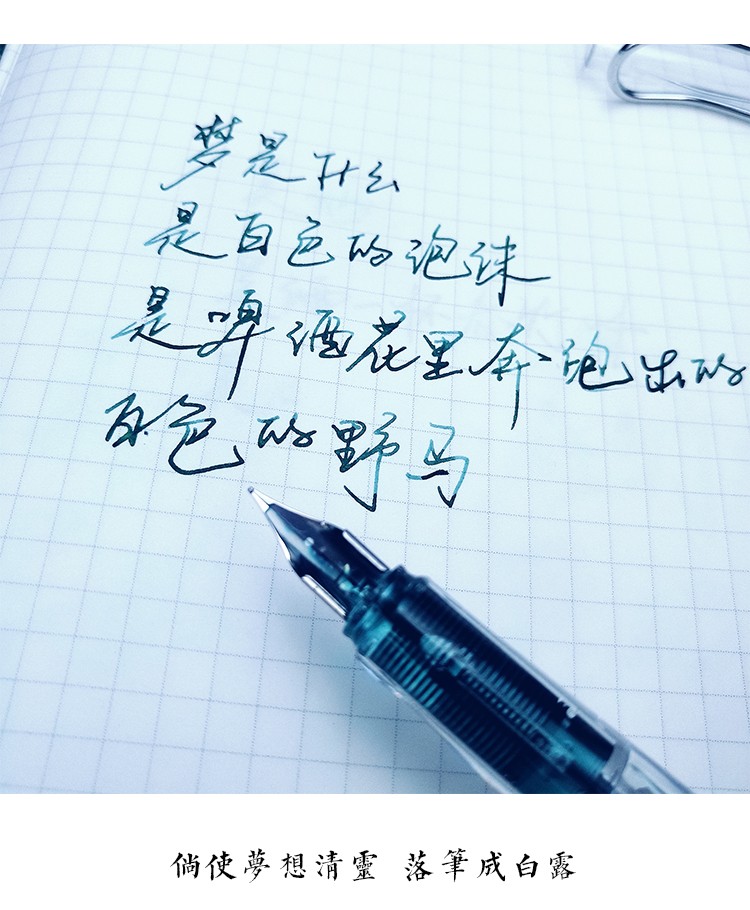 梦是什么
是白色的泡沫
是啤酒花里奔跑出的
白色的野马
倘使夢想清靈 落筆成白露